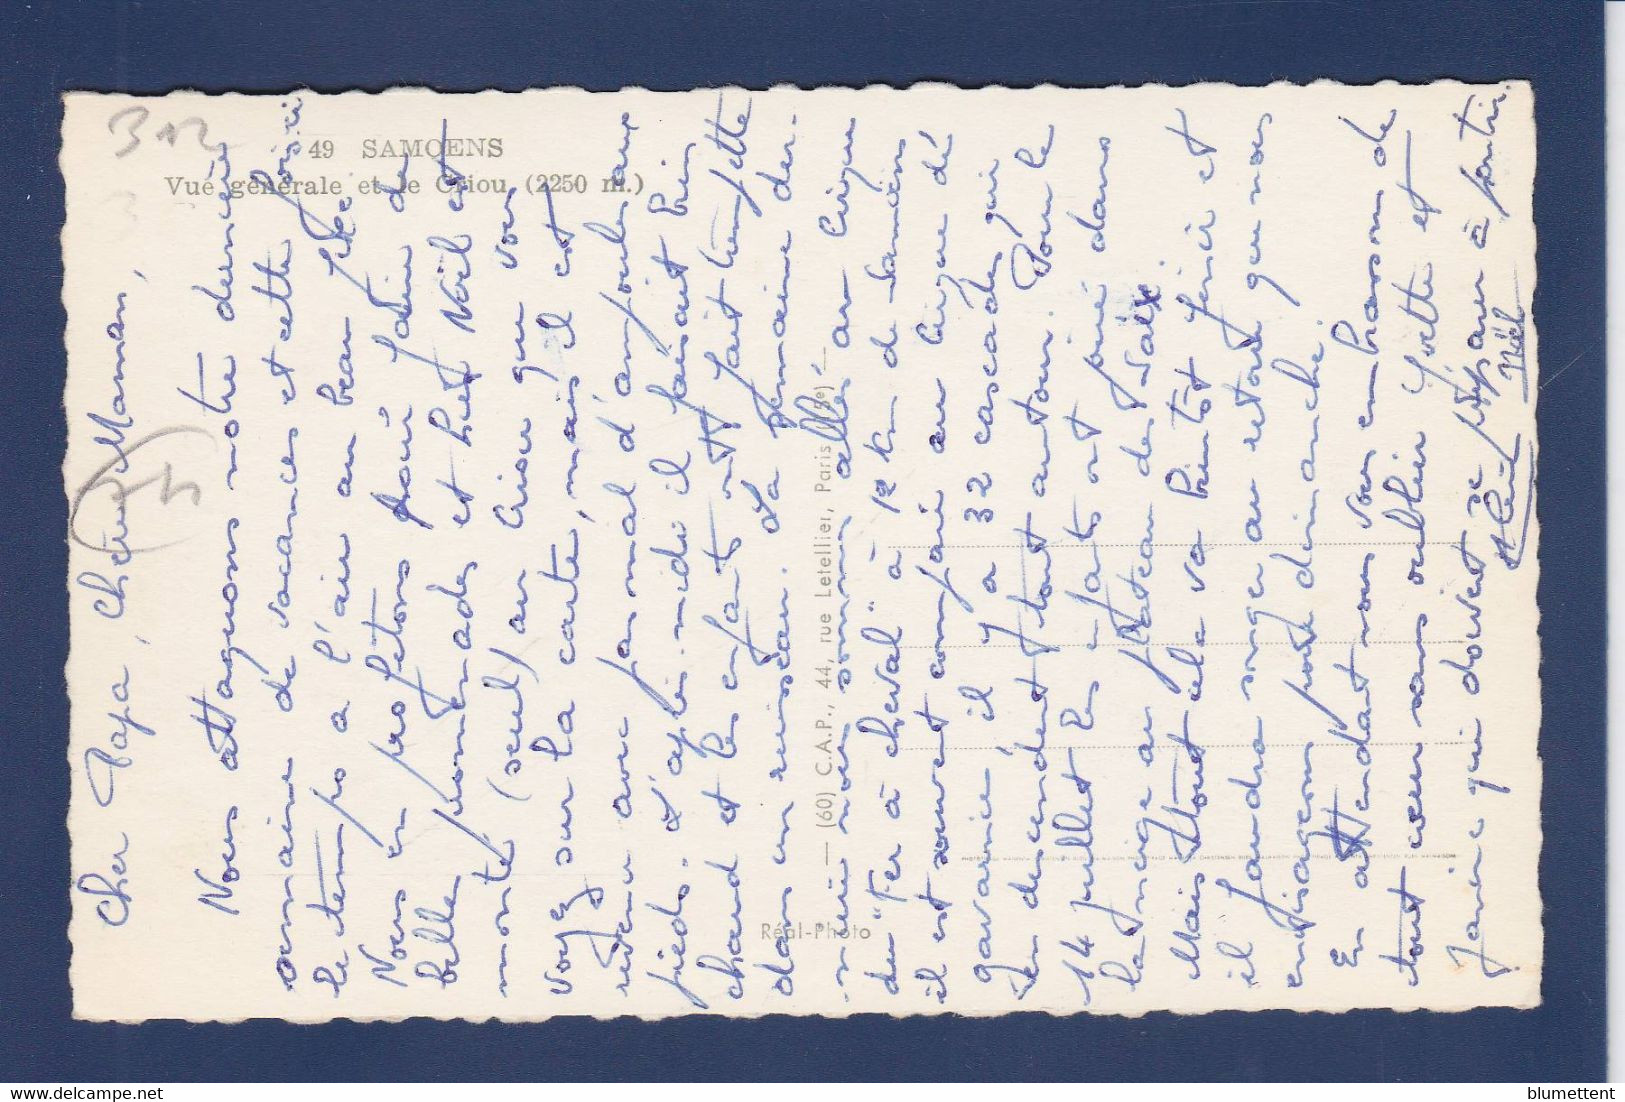 49 SAMOENS
Vue générale et le Criou (2250 m.)
Cher Papa, Chère Maman,
Nous attaquons notre dernière
semaine de vacances et cette fois-ci
le temps a l'air au beau fixe
Nous en profitons pour faire de
belles promenades et hier Noël est
monté (seul) au Criou que vous
voyez sur la carte, mais il est
revenu avec pas mal d'ampoules aux
pieds. L'après-midi il faisait bien
chaud et les enfants ont fait trempette
dans un ruisseau. La semaine der-
-nière nous sommes allés au Cirque
du "Fer à cheval" à 12 km de Samoëns
il est souvent comparé au Cirque de
gavarnie il y a 32 cascades qui
en descendent tout autour. Pour le
14 juillet les enfants ont joué dans
la neige au plateau des Saix
Mais tout cela va bientôt finir et
il faudra songer au retour que nous
envisageons pour dimanche.
En attendant nous vous embrassons de
tout coeur sans oublier Yvette et
Janine qui doivent se préparer à partir.
Noël
Réal-Photo — (60) C.A.P., 44, rue Letellier, Paris (15e) —
312
15
blumettent